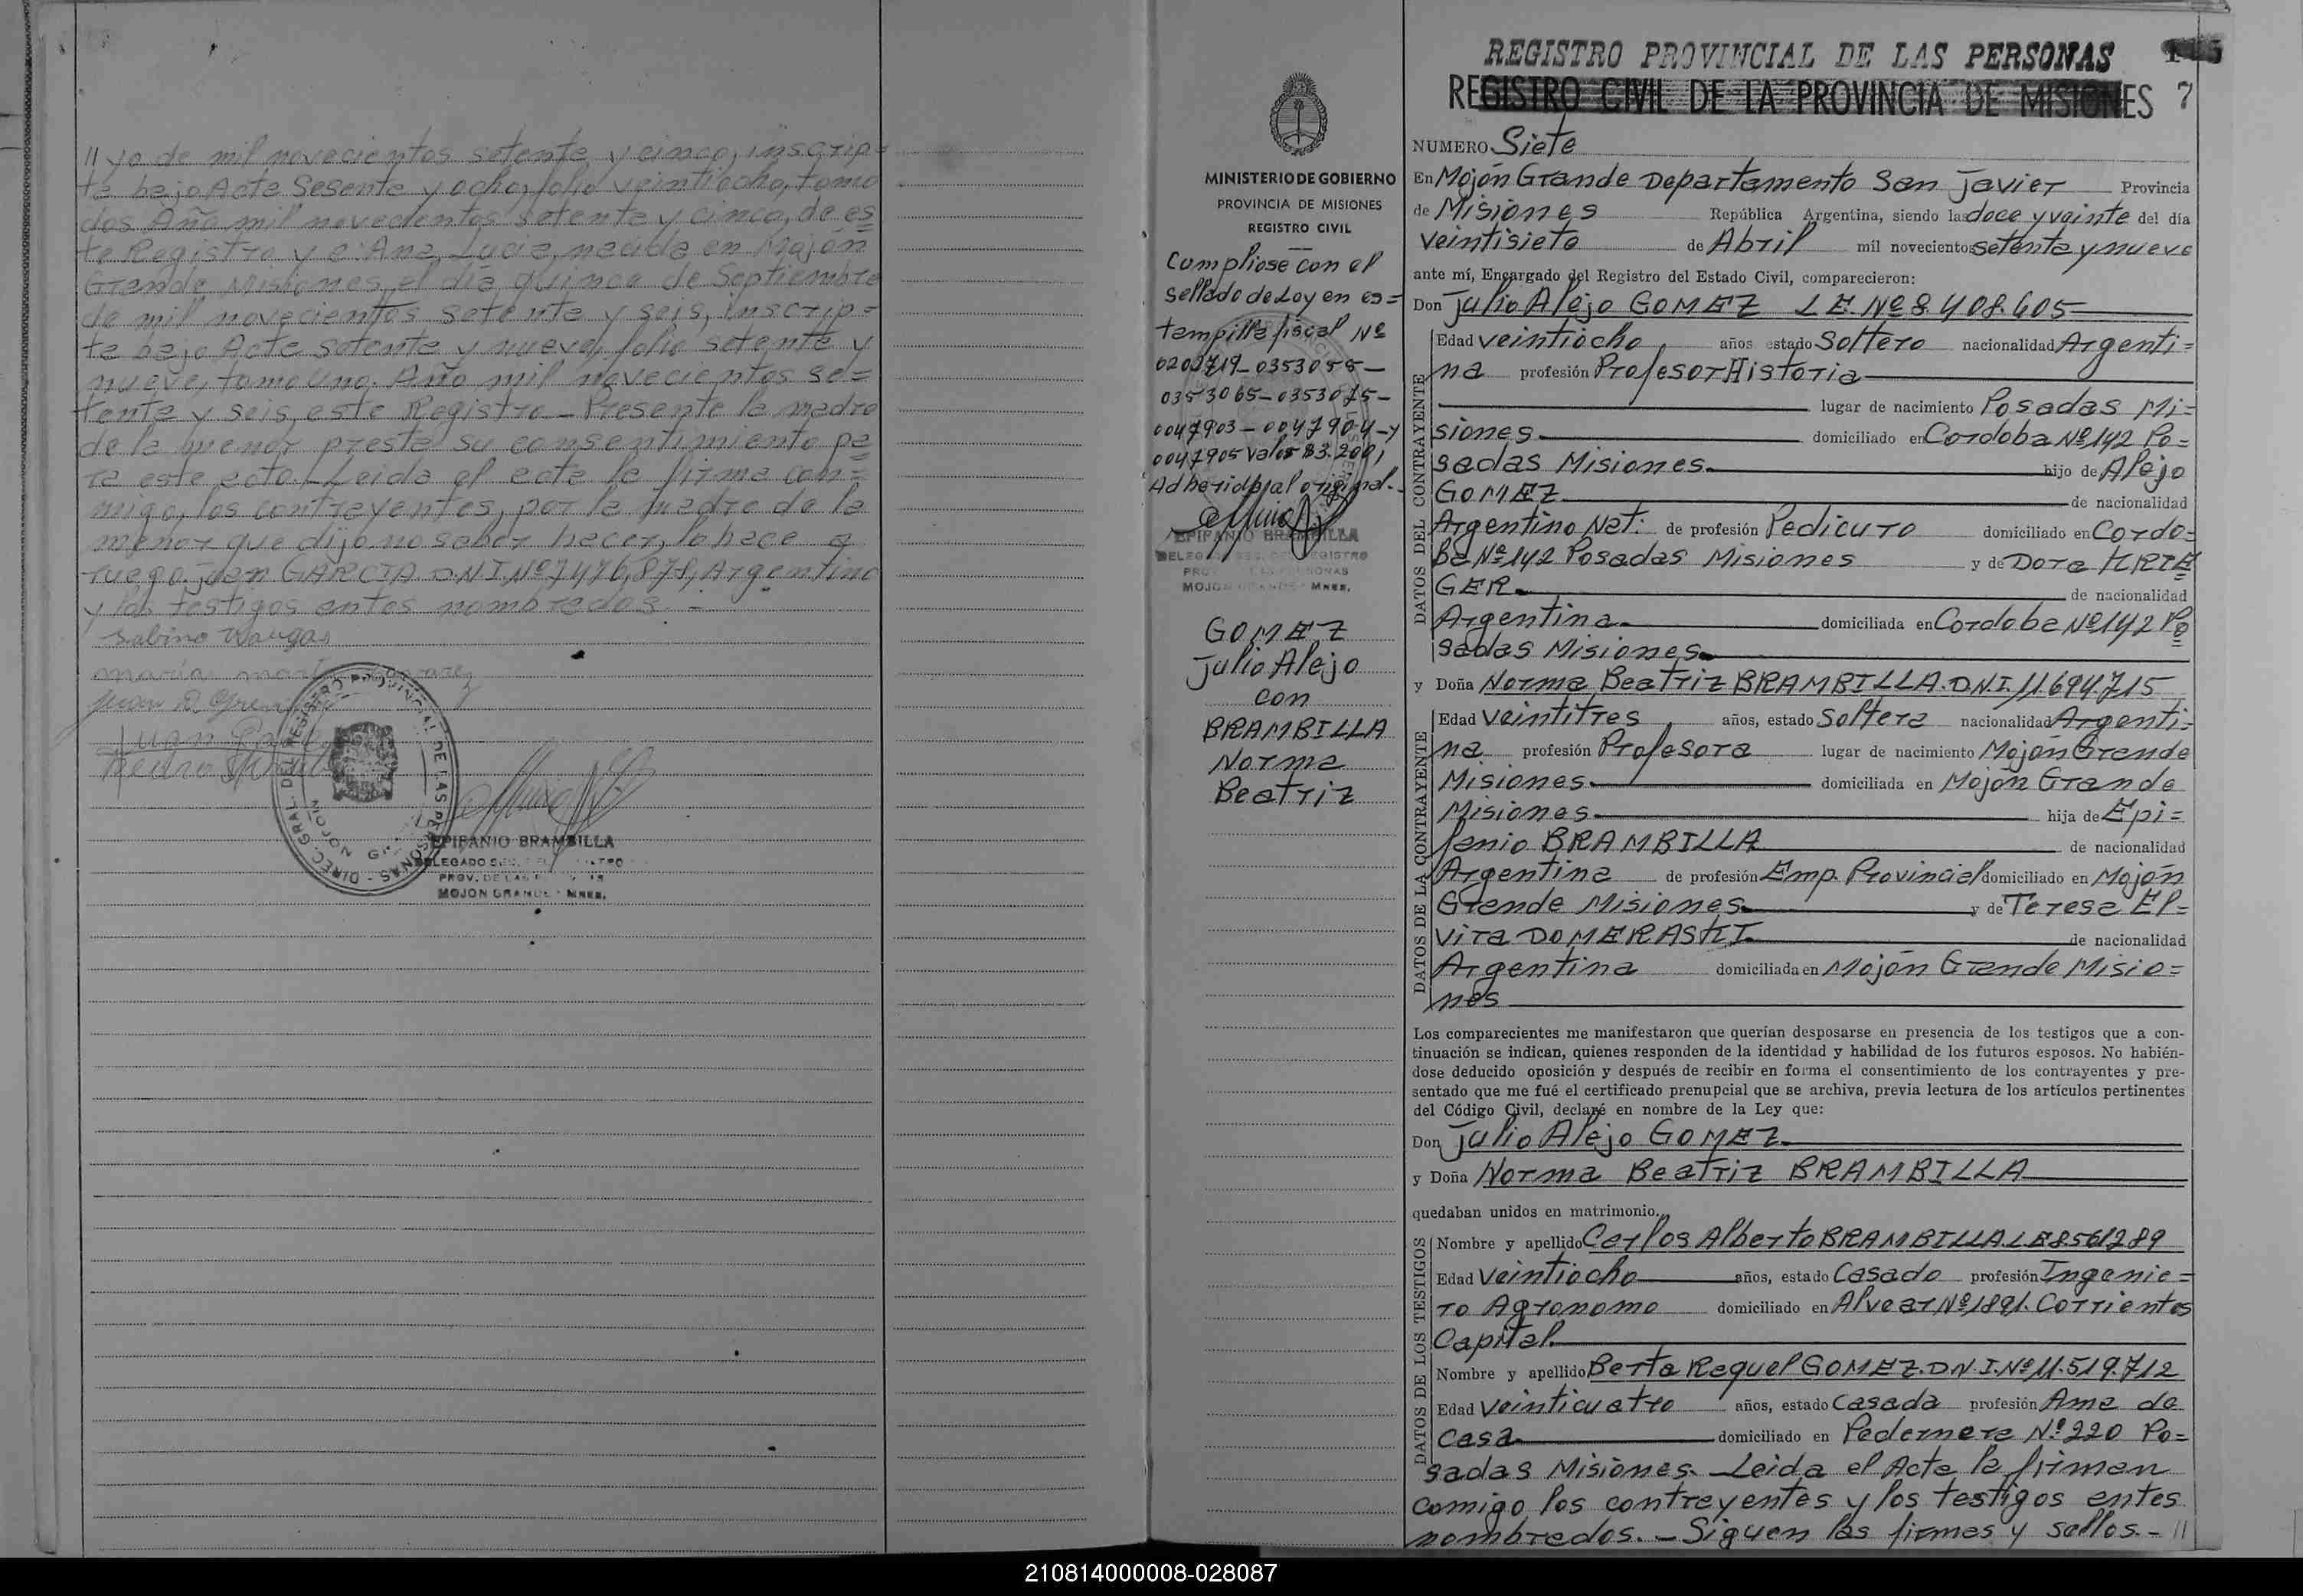 // yo de mil novecientos setenta y cinco, inscrip=
ta bajo Acta Sesenta y ocho, folio veintiocho, tomo
dos Año mil novecientos setenta y cinco, de es=
te Registro y a: Ana Lucia, nacida en Mojón
Grande Misiones, el día quince de Septiembre
de mil novecientos setenta y seis, inscrip=
ta bajo Acta setenta y nueve, folio setenta y
nueve, tomo Uno. Año mil novecientos se=
tenta y seis, este Registro – Presente la madre
de la menor presta su consentimiento pa=
ra este acto. – Leida el acta la firma con=
migo, los contrayentes, por la madre de la
menor que dijo no saber hacer, lo hace a
ruego Juan GARCIA D.N.I. Nº 7.476.878, Argentino
y los testigos antes nombrados. –
Sabino Vargas
EPIFANIO BRAMBILLA
MOJON GRANDE - MNES.
MINISTERIO DE GOBIERNO
PROVINCIA DE MISIONES
REGISTRO CIVIL
Cumpliose con el
sellado de Ley en es=
tampilla fiscal Nº
0353065 – 0353075 –
0047903 – 0047904 – y
0047905 valor $ 3.200,
Adherida al original. –
EPIFANIO BRAMBILLA
GOMEZ
Julio Alejo
con
BRAMBILLA
Norma
Beatriz
REGISTRO PROVINCIAL DE LAS PERSONAS
REGISTRO CIVIL DE LA PROVINCIA DE MISIONES 7
NUMERO Siete
En Mojón Grande Departamento San Javier Provincia
de Misiones República Argentina, siendo las doce y veinte del día
veintisiete de Abril mil novecientos setenta y nueve
ante mí, Encargado del Registro del Estado Civil, comparecieron:
Don Julio Alejo GOMEZ L.E. Nº 8.408.605
DATOS DEL CONTRAYENTE
Edad veintiocho años estado Soltero nacionalidad Argenti=
na profesión Profesor Historia
lugar de nacimiento Posadas Mi=
siones. domiciliado en Cordoba Nº 142 Po=
sadas Misiones. hijo de Alejo
GOMEZ de nacionalidad
Argentino Nat. de profesión Pedicuro domiciliado en Cordo=
ba Nº 142 Posadas Misiones y de Dora KRIE
GER. de nacionalidad
Argentina. domiciliada en Cordoba Nº 142 Po
sadas Misiones.
y Doña Norma Beatriz BRAMBILLA. D.N.I. 11.694.715
DATOS DE LA CONTRAYENTE
Edad veintitres años, estado Soltera nacionalidad Argenti=
na. profesión Profesora lugar de nacimiento Mojón Grande
Misiones. domiciliada en Mojón Grande
Misiones. hija de Epi=
fanio BRAMBILLA de nacionalidad
Argentina de profesión Emp. Provincial domiciliado en Mojón
Grande Misiones. y de Teresa El=
vira DOMERASKI. de nacionalidad
Argentina domiciliada en Mojón Grande Misio=
nes
Los comparecientes me manifestaron que querían desposarse en presencia de los testigos que a con-
tinuación se indican, quienes responden de la identidad y habilidad de los futuros esposos. No habién-
dose deducido oposición y después de recibir en forma el consentimiento de los contrayentes y pre-
sentado que me fué el certificado prenupcial que se archiva, previa lectura de los artículos pertinentes
del Código Civil, declaré en nombre de la Ley que:
Don Julio Alejo GOMEZ.
y Doña Norma Beatriz BRAMBILLA
quedaban unidos en matrimonio.
DATOS DE LOS TESTIGOS
Nombre y apellido Carlos Alberto BRAMBILLA. L.E. 8.561289
Edad veintiocho años, estado Casado profesión Ingenie=
ro Agronomo domiciliado en Alvear Nº 1891. Corrientes
Capital.
Nombre y apellido Berta Raquel GOMEZ. D.N.I. Nº 11.519.712
Edad veinticuatro años, estado Casada profesión Ama de
casa. domiciliado en Pedernera Nº 220 Po=
sadas Misiones. – Leida el Acta la firman
comigo los contrayentes y los testigos antes
nombrados. – Siguen las firmas y sellos. – //
210814000008-028087